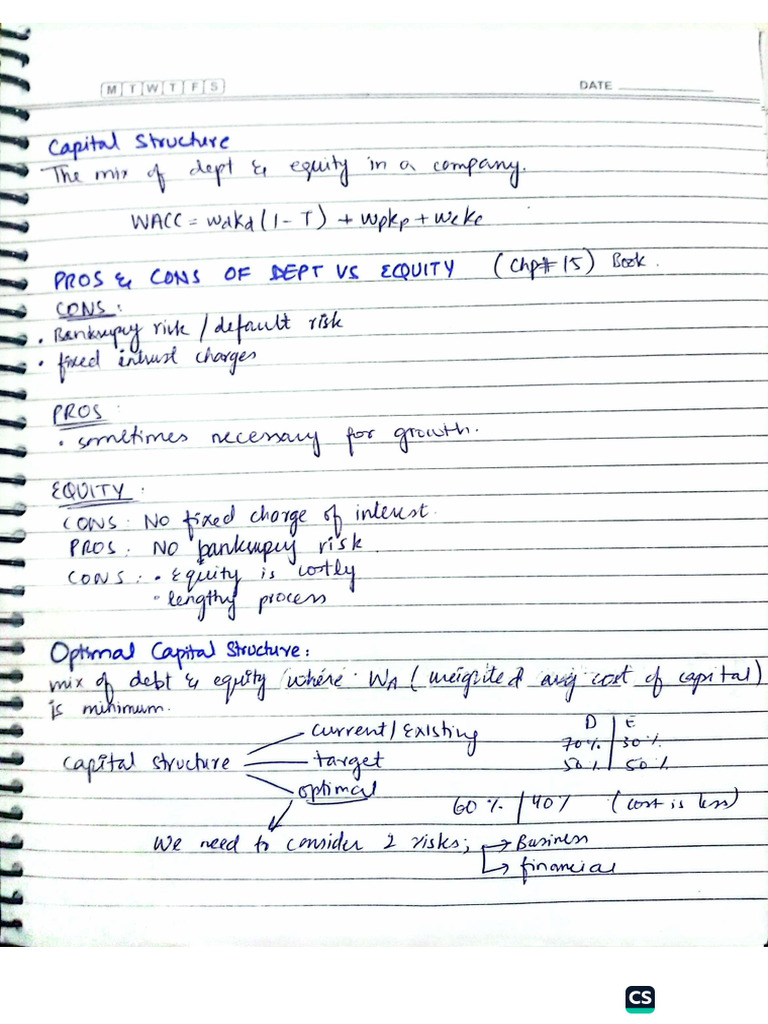 M T W T F S
DATE
Capital Structure
The mix of dept & equity in a company.
WACC = wdkd(1-T) + wpkp + weke
PROS & CONS OF DEPT VS EQUITY (Chp# 15) Book.
CONS:
• Bankrupcy risk / default risk
• fixed intrust charges
PROS:
• sometimes necessary for growth.
EQUITY:
CONS: No fixed charge of interest.
PROS: No bankrupcy risk
CONS: • Equity is costly
• lengthy process
Optimal Capital Structure:
mix of debt & equity where WA (weighted avg cost of capital)
is minimum.
D | E
current/Existing 70% | 30%
Capital structure target 50% | 50%
optimal 60% | 40% (cost is less)
We need to consider 2 risks; → Business
→ financial
CS